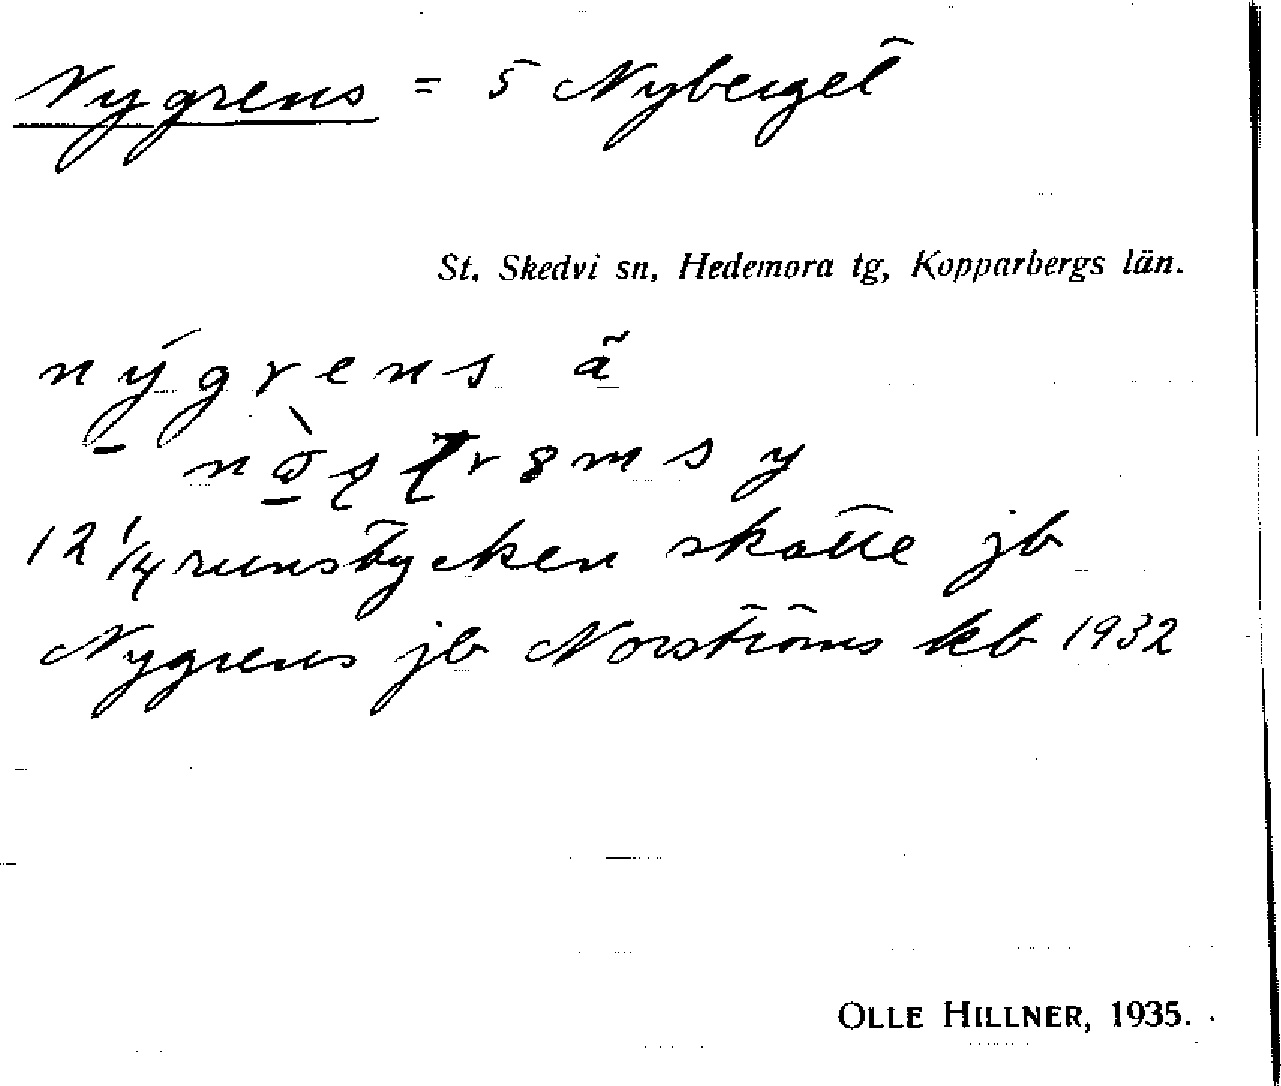 Nygrens = 5 Nyberget
St. Skedvi sn, Hedemora tg, Kopparbergs län.
nýgrens ä
nòstrøms y
12 1/4 runstycken skatte jb
Nygrens jb Norströms kb 1932
OLLE HILLNER, 1935.